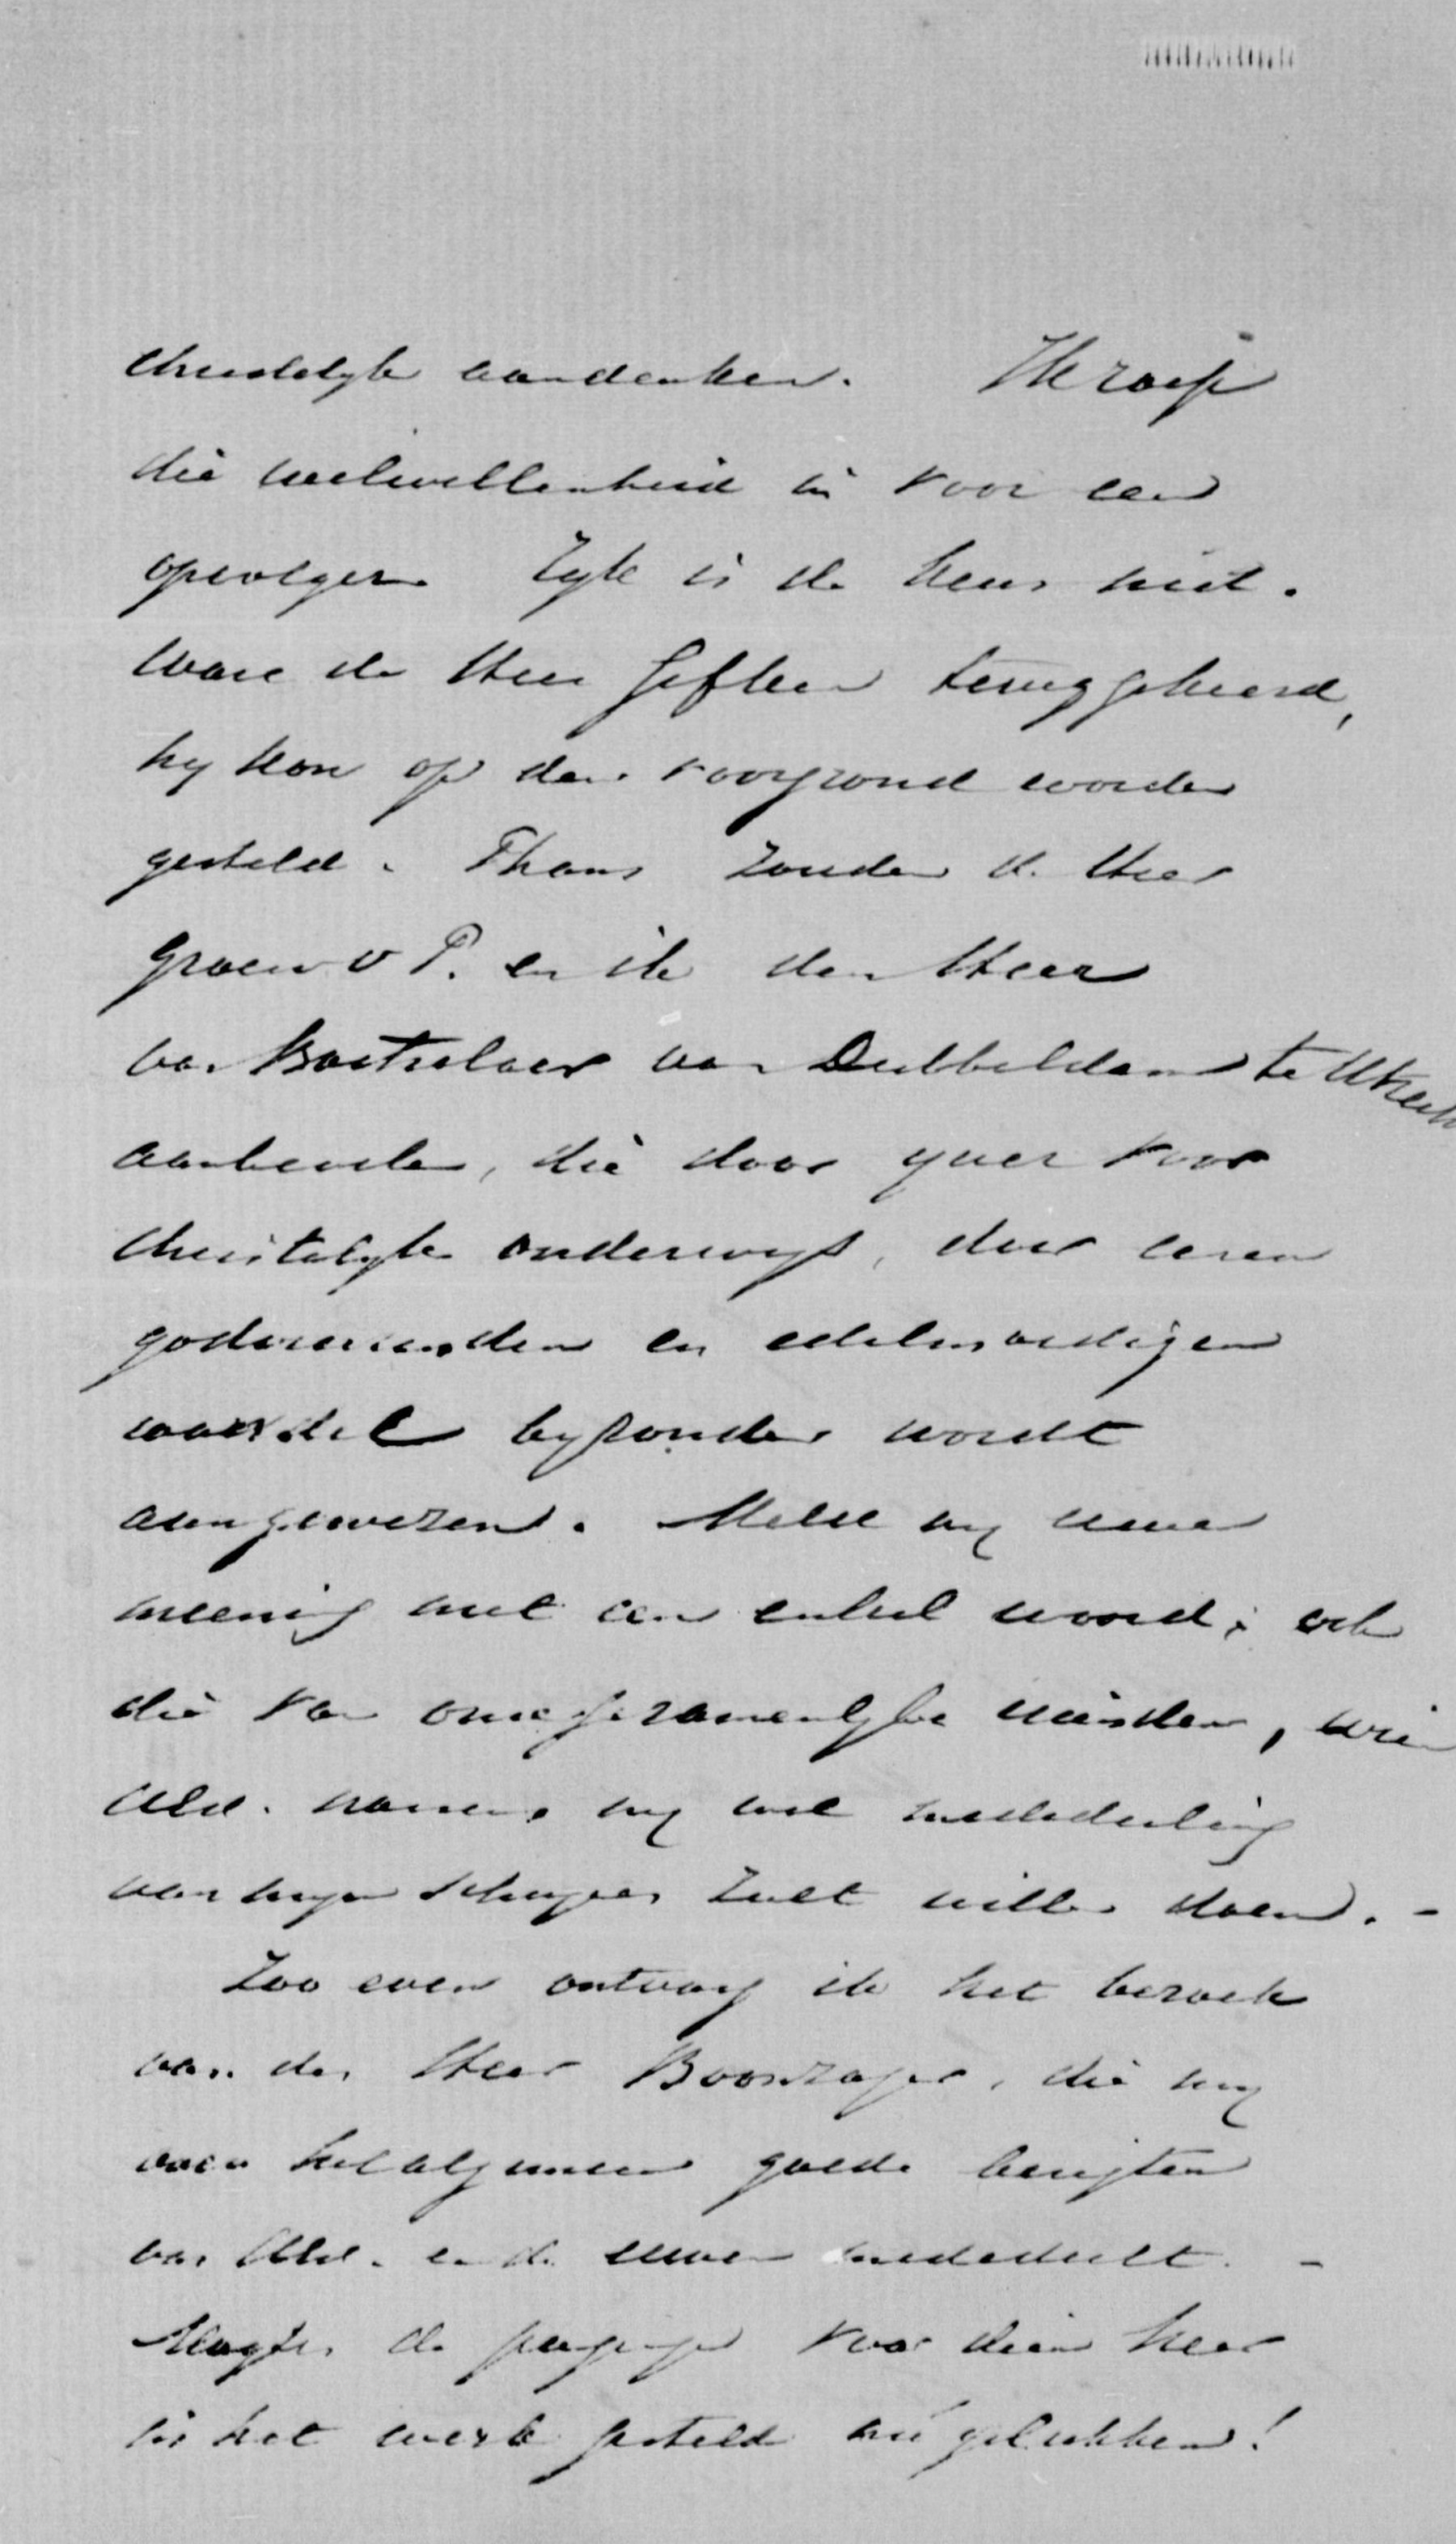 christelyk aandenken. Ik roep
die welwillendheid in voor een
opvolger. Ryk is de keus niet.
Ware de Heer Gefken teruggekeerd,
hy kon op den voorgrond worden
gesteld. Thans zouden de Heer
Groen v P. en ik den Heer
van Boetzelaer van Dubbeldam te Utrecht
aanbevelen, die door yver voor
christelyk onderwys, door eenen
godvruchtigen en edelmoedigen
wandel byzonder wordt
aangewezen. Meld my uwe
meening met een enkel woord; ook
die van onze gezamenlyke vrienden, wien
UEd. namens my wel mededeeling
van myn schryven zult willen doen. -
Zoo even ontvang ik het bezoek
van den Heer Boonzajer, die my
over het algemeen goede berigten
van UEd. en de uwen mededeelt. -
Mogten de pogingen voor dien heer
in het werk gesteld nu gelukken!